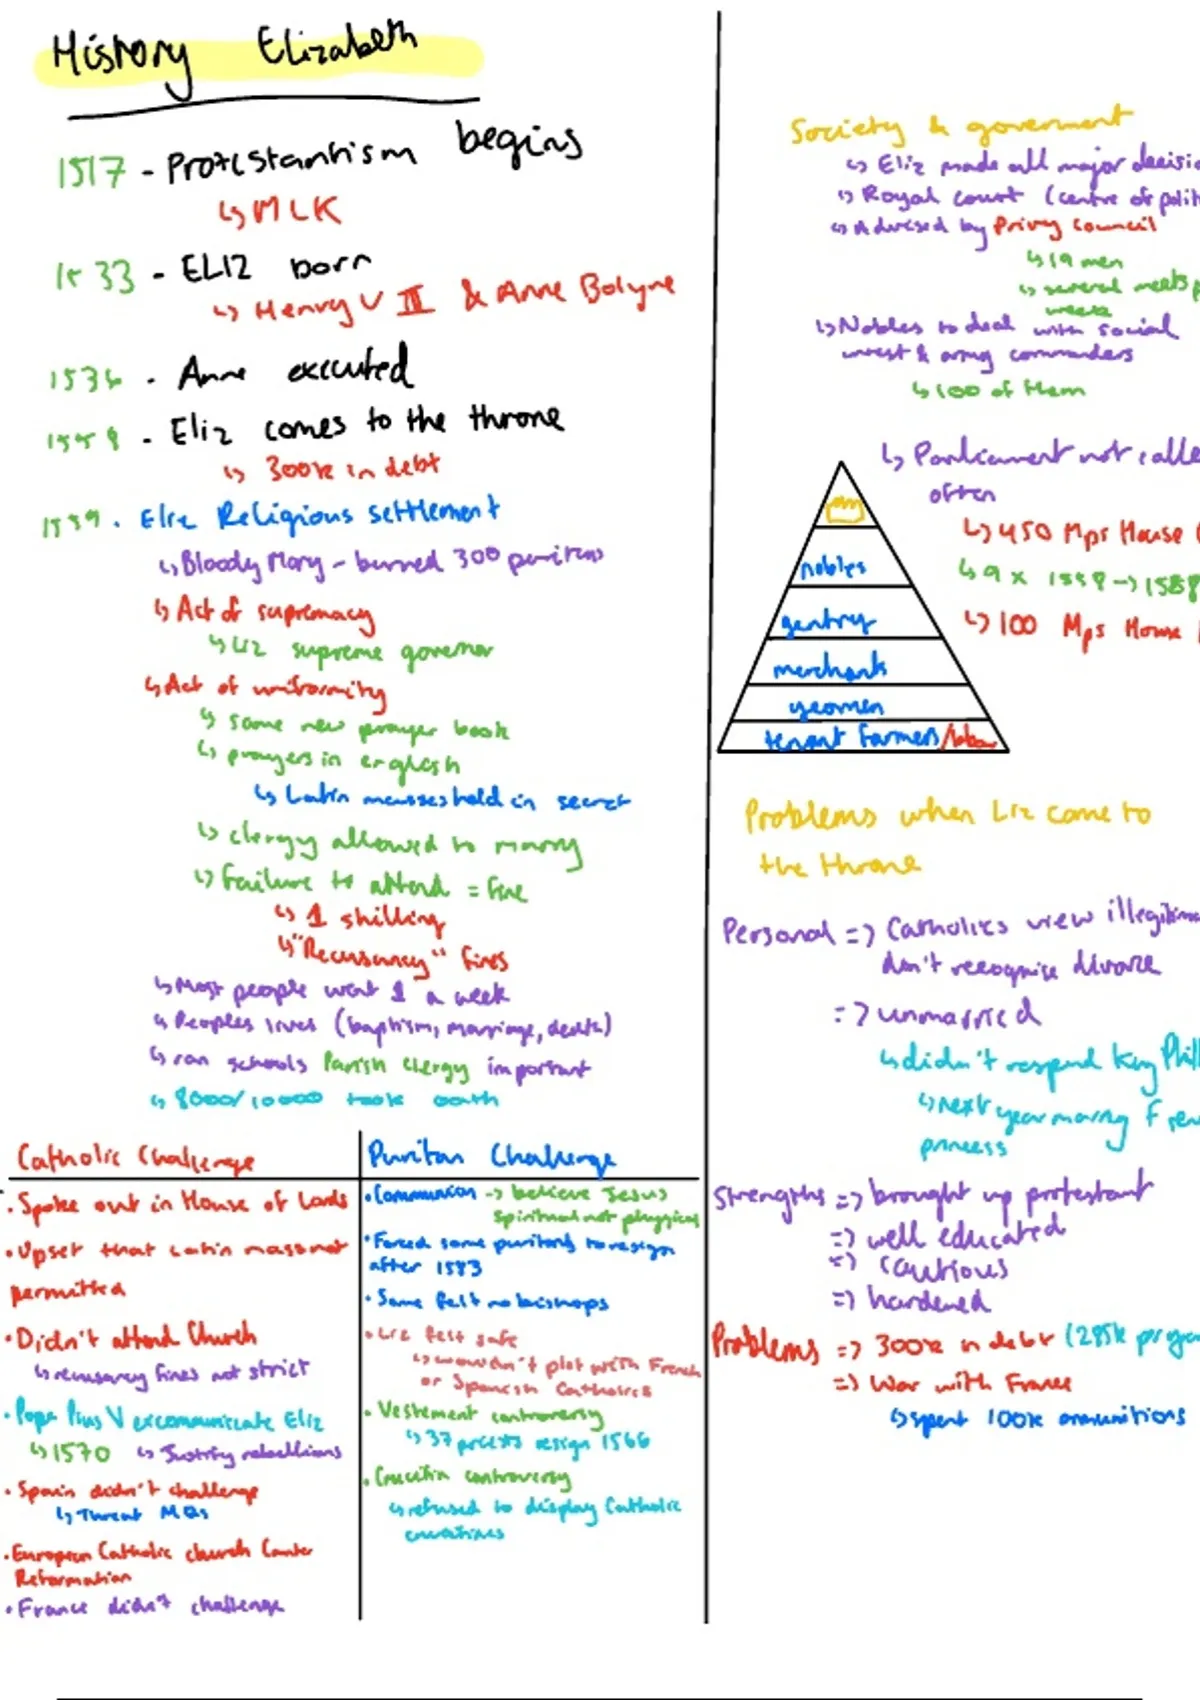 History Elizabeth
1517 - Protestantism begins
↳ MLK
1533 - ELIZ born
↳ Henry VIII & Anne Bolyne
1536 - Anne executed
1558 - Eliz comes to the throne
↳ 300k in debt
1559 - Eliz Religious settlement
↳ Bloody Mary - burned 300 puritans
↳ Act of supremacy
↳ Liz supreme governor
↳ Act of uniformity
↳ same new prayer book
↳ prayers in english
↳ Latin masses held in secret
↳ clergy allowed to marry
↳ Failure to attend = fine
↳ 1 shilling
↳ "Recusancy" fines
↳ Most people went 1 a week
↳ Peoples lives (baptism, marriage, death)
↳ ran schools Parish clergy important
↳ 8000/10000 took oath
Catholic Challenge
· Spoke out in House of Lords
· Upset that Latin mass not
permitted
· Didn't attend Church
↳ recusancy fines not strict
· Pope Pius V excommunicate Eliz
↳ 1570 ↳ Justify rebellions
· Spain didn't challenge
↳ Threat MQs
· European Catholic church Counter
Reformation
· France didn't challenge
Puritan Challenge
· Communion -> believe Jesus
spiritual not physical
· Forced some puritans to resign
after 1583
· Some felt no bishops
· Liz felt safe
↳ wouldn't plot with French
or Spanish Catholics
· Vestement controversy
↳ 37 priests resign 1566
· Crucifix controversy
↳ refused to display Catholic
Society & goverment
↳ Eliz made all major decisio
↳ Royal court (centre of polit
↳ Advised by Privy Council
↳ 19 men
↳ several meets p
week
↳ Nobles to deal with social
unrest & army commanders
↳ 100 of them
↳ Parliament not calle
often
↳ 450 Mps House
↳ 9 x 1558 -> 1588
↳ 100 Mps House
nobles
gentry
merchants
yeomen
tenant farmers/labou
Problems when Liz came to
the throne
Personal => Catholics view illegitima
don't recognise divorce
=> unmarried
↳ didn't respond King Phill
↳ next year marry Fren
princess
Strengths => brought up protestant
=> well educated
=> cautious
=> hardened
Problems => 300k in debt (285k p
=> War with France
↳ spent 100k ammunitions